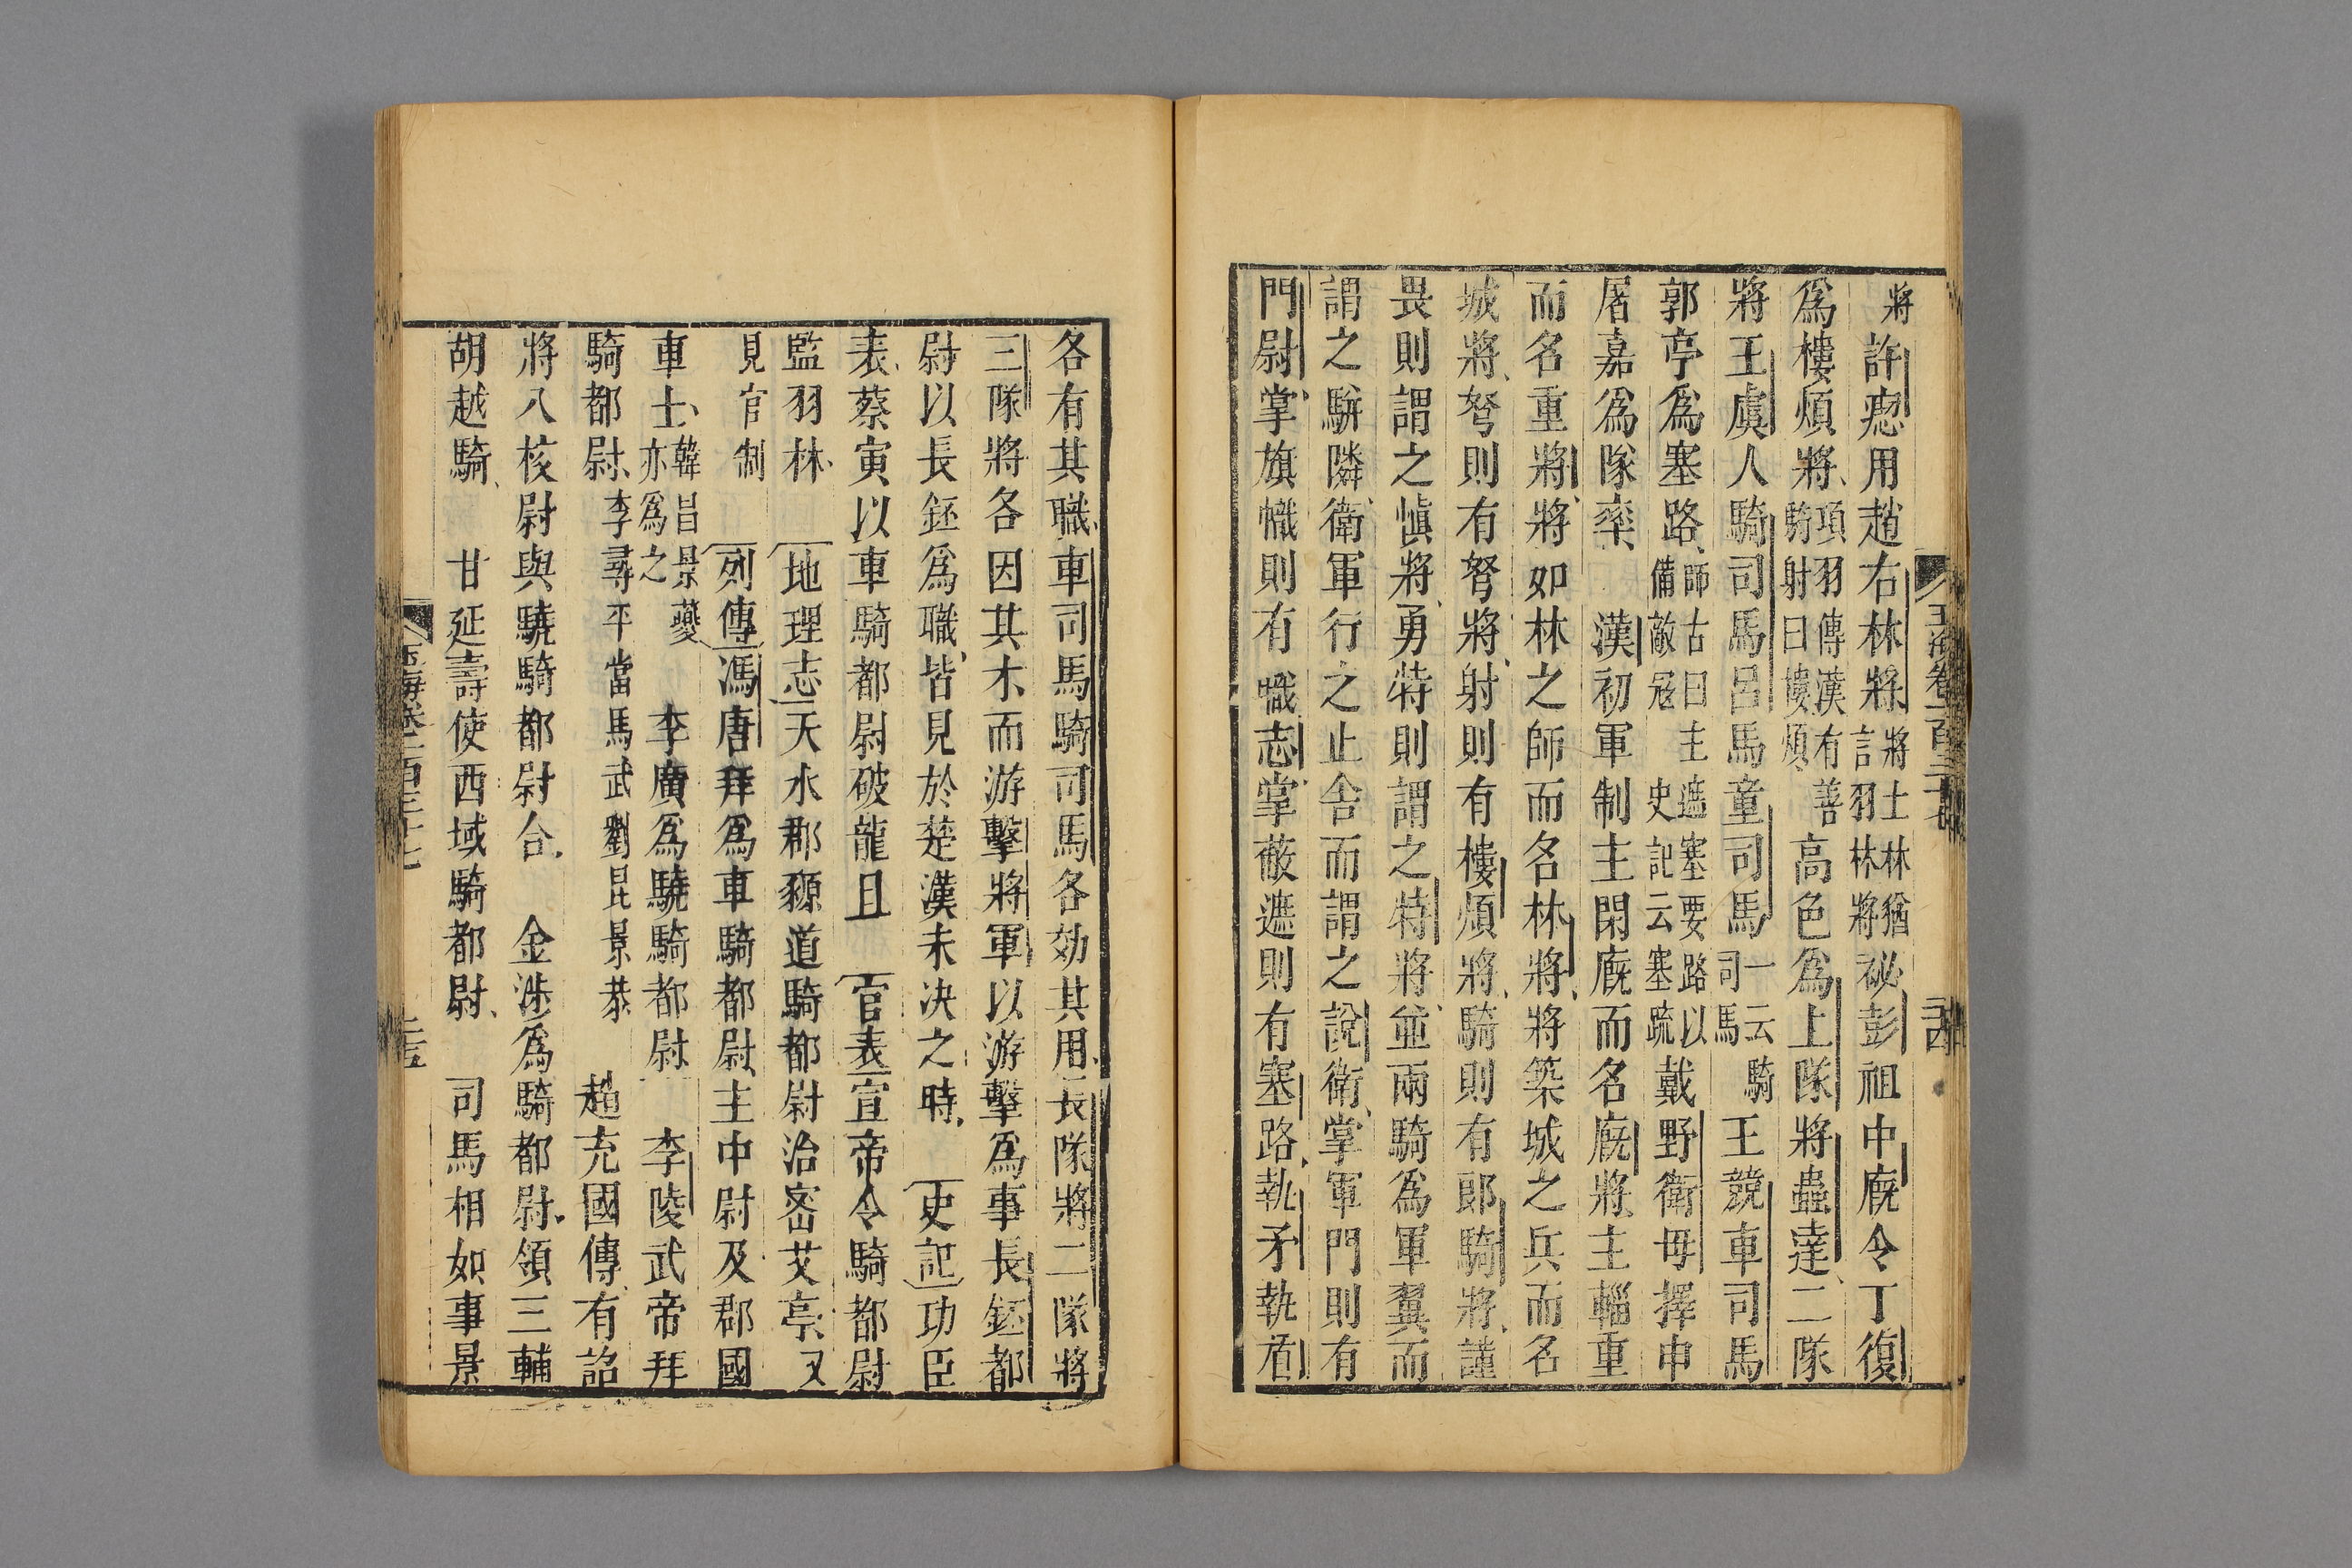 將許瘛用趙右林將將士林林猶言羽林將祕彭祖中廐令丁復
爲樓煩將項羽傳漢有善騎射曰樓煩高色爲上隊將蟲達二隊
將王虞人騎司馬呂馬童司馬一云騎司馬王競車司馬
郭亭爲塞路師古曰主遮塞要路以備敵寇史記云塞疏戴野衛毋擇申
屠嘉爲隊率漢初軍制主閑廐而名廐將主輜重
而名重將將如林之師而名林將將築城之兵而名
城將弩則有弩將射則有樓煩將騎則有郎騎將謹
畏則謂之愼將勇特則謂之特將並兩騎爲軍翼而
謂之駢隣衛軍行之止舍而謂之說衛掌軍門則有
門尉掌旗幟則有職志掌蔽遮則有塞路執矛執盾
各有其職車司馬騎司馬各効其用長隊將二隊將
三隊將各因其木而游擊將軍以游擊爲事長鈺都
尉以長鈺爲職皆見於楚漢未决之時史記功臣
表蔡寅以車騎都尉破龍且官表宣帝令騎都尉
監羽林地理志天水郡豲道騎都尉治密艾亭又
見官制列傳馮唐拜爲車騎都尉主中尉及郡國
車士韓昌景夔亦爲之李廣爲驍騎都尉李陵武帝拜
騎都尉李尋平當馬武劉昆景恭趙充國傳有詔
將八校尉與驍騎都尉合金涉爲騎都尉領三輔
胡越騎甘延壽使西域騎都尉司馬相如事景